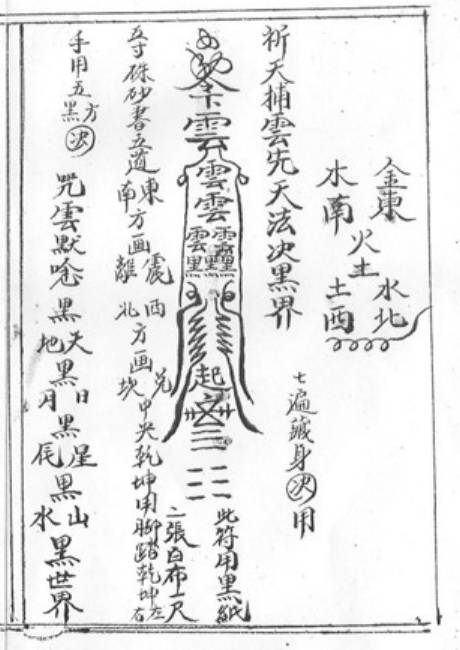 金東
水北
火土
水南
土西
祈天捕雲先天法決黑界
七遍藏身決用
令雲
雲雲
雲雲
黑黑黑
起
此符用黑紙
二張白布一尺
五寸硃砂書五道東方画震
南方画離
西方画兌
北方画坎中央乾坤用脚踏乾坤左右
手用五方黑決
咒雲默唸黑天黑地黑日月黑星辰黑山水黑世界